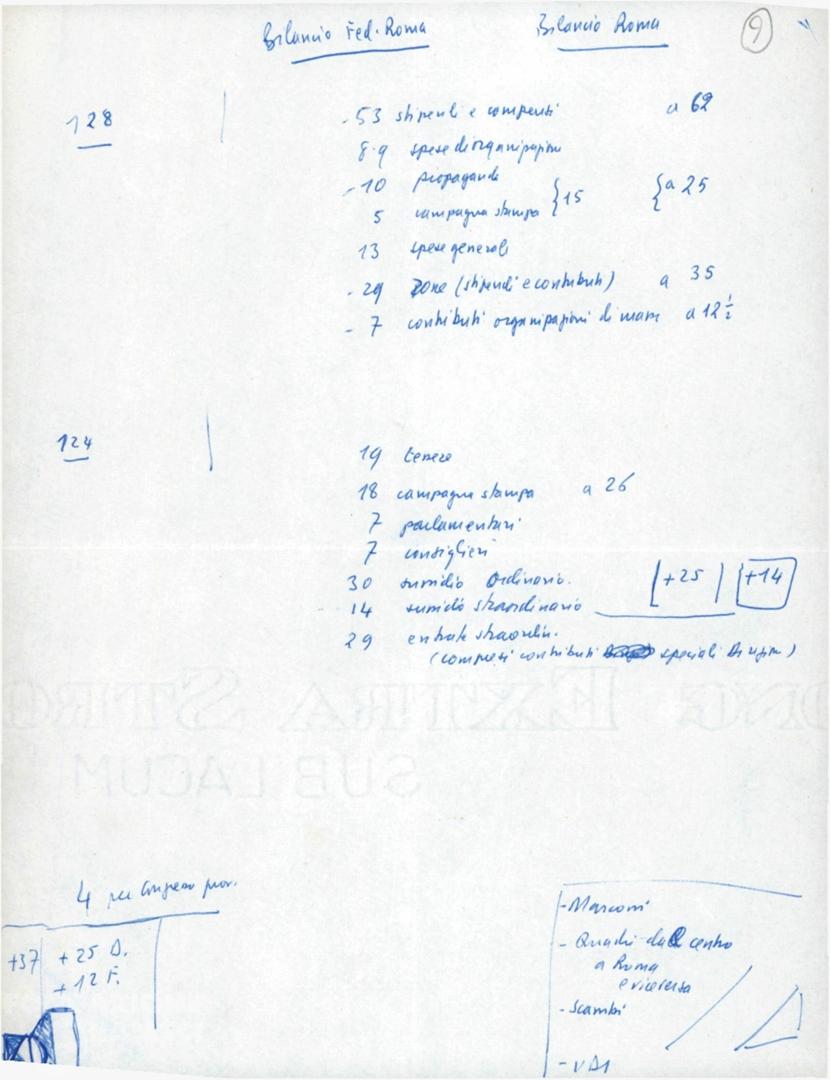 Bilancio Fed. Roma Bilancio Roma 9
128
- 53 stipendi e compensi a 62
8.9 spese di organizzazione
- 10 propaganda
5 campagna stampa } 15 { a 25
13 spese generali
- 29 zone (stipendi e contributi) a 35
- 7 contributi organizzazioni di massa a 12 1/2
124
19 tessere
18 campagna stampa a 26
7 parlamentari
7 consiglieri
30 sussidio ordinario. [+25] [+14]
14 sussidio straordinario
29 entrate straordin.
(compresi contributi speciali)
4 per Congresso prov.
+37 + 25 D.
+ 12 F.
- Marconi
- Quadri dal centro
a Roma
e viceversa
- Scambi
EXTRA
SUB LACUM